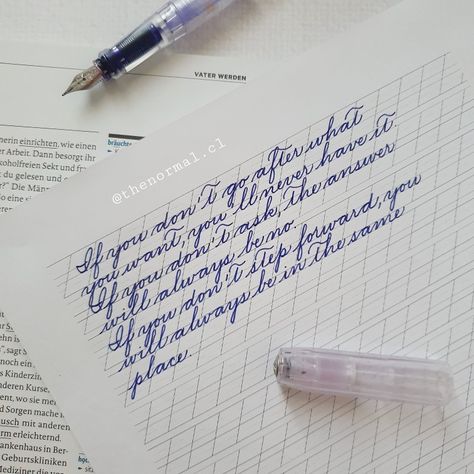 VATER WERDEN
nerin einrichten, wie einen
Arbeit. Dann besorgt ihr
koholfreien Sekt und
du gelesen und
Die Män
@thenormal.cl
If you don't go after what
you want, you'll never have it.
If you don't ask, the answer
will always be no.
If you don't step forward, you
will always be in the same
place.
sagt S
as Kinderzin
anderen Kurse,
sie mei
d Sorgen mache
usch mit anderen
rm erleichternd.
ankenhaus in Ber-
Geburtskliniken
Mediziner die von